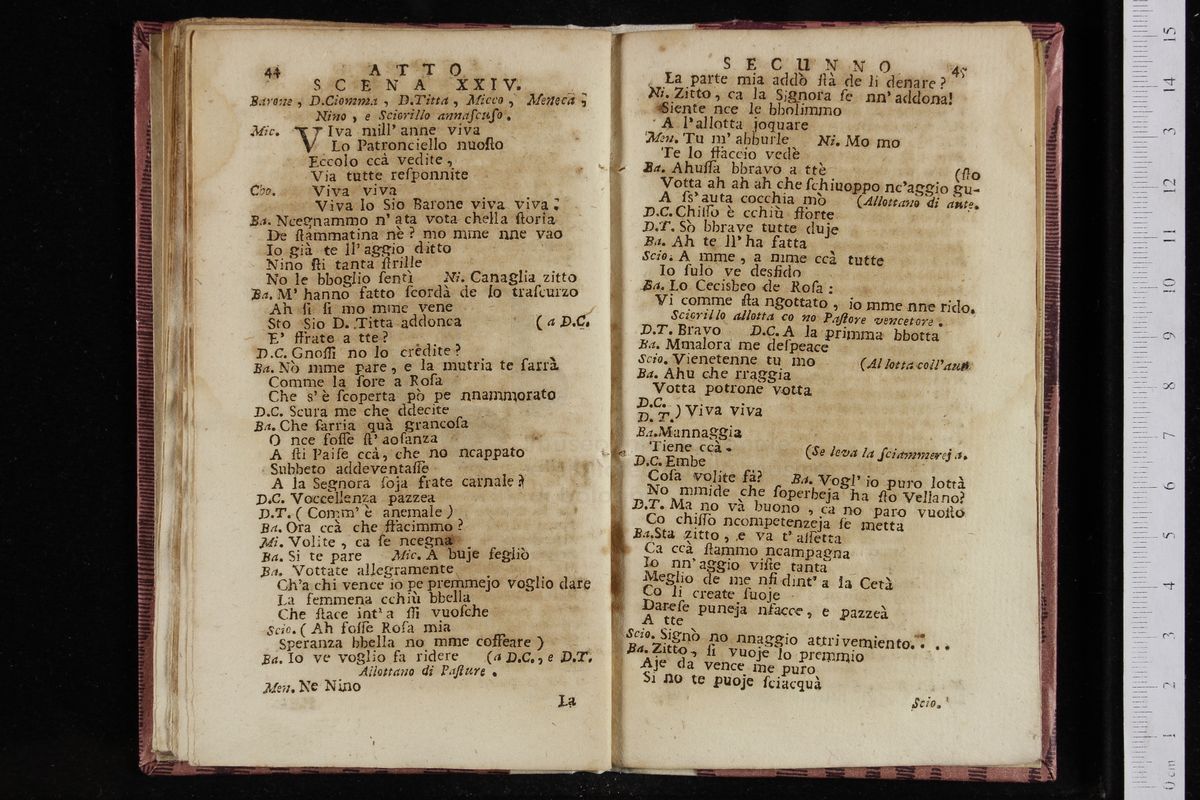 44 ATTO
SCENA XXIV.
Barone, D.Ciomma, D.Titta, Micco, Meneca,
Nino, e Sciorillo annaſcuſo.
Mic. VIva mill' anne viva
Lo Patronciello nuoſto
Eccolo ccà vedite,
Via tutte reſponnite
Cho. Viva viva
Viva lo Sio Barone viva viva.
Ba. Ncegnammo n' ata vota chella ſtoria
De ſtammatina nè? mo mme nne vao
Io già te ll' aggio ditto
Nino ſti tanta ſtrille
No le bboglio ſentì Ni. Canaglia zitto
Ba. M' hanno fatto ſcordà de lo traſcurzo
Ah ſi ſi mo mme vene
Sto Sio D. Titta addonca (a D.C.
E' ffrate a tte?
D.C. Gnoſſì no lo crèdite?
Ba. Nò mme pare, e la mutria te ſarrà
Comme la ſore a Roſa
Che s' è ſcoperta pò pe nnammorato
D.C. Scura me che ddecite
Ba. Che ſarria quà grancoſa
O nce foſſe ſt' aoſanza
A ſti Paiſe ccà, che no ncappato
Subbeto addeventaſſe
A la Segnora ſoja frate carnale?
D.C. Voccellenza pazzea
D.T. (Comm' è anemale)
Ba. Ora ccà che ffacimmo?
Mi. Volite, ca ſe ncegna
Ba. Si te pare Mic. A buje ſegliò
Ba. Vottate allegramente
Ch'a chi vence io pe premmejo voglio dare
La femmena cchiù bbella
Che ſtace int' a ſſi vuoſche
Scio. (Ah foſſe Roſa mia
Speranza bbella no mme coffeare)
Ba. Io ve voglio fa ridere (a D.C., e D.T.
Allottano di Paſture.
Men. Ne Nino
La
SECUNNO 45
La parte mia addò ſtà de li denare?
Ni. Zitto, ca la Signora ſe nn' addona!
Siente nce le bbolimmo
A l'allotta joquare
Men. Tu m' abburle Ni. Mo mo
Te lo ffaccio vedè
Ba. Ahuſſa bbravo a ttè (ſto
Votta ah ah ah che ſchiuoppo nc'aggio gu-
A ſs' auta cocchia mò (Allottano di aute.
D.C. Chiſſo è cchiù fforte
D.T. Sò bbrave tutte duje
Ba. Ah te ll' ha fatta
Scio. A mme, a mme ccà tutte
Io ſulo ve desfido
Ba. Lo Ceciſbeo de Roſa:
Vi comme ſta ngottato, io mme nne rido.
Sciorillo allotta co no Paſtore vencetore.
D.T. Bravo D.C. A la primma bbotta
Ba. Mmalora me deſpeace
Scio. Vienetenne tu mo (Allotta coll' aut.
Ba. Ahu che rraggia
Votta potrone votta
D.C.
D.T.) Viva viva
Ba. Mannaggia
Tiene ccà. (Se leva la ſciammereja.
D.C. Embe
Coſa volite fà? Ba. Vogl' io puro lottà
No mmide che ſoperbeja ha ſto Vellano?
D.T. Ma no và buono, ca no paro vuoſto
Co chiſſo ncompetenzeja ſe metta
Ba. Sta zitto, e va t' aſſetta
Ca ccà ſtammo ncampagna
Io nn' aggio viſte tanta
Meglio de me nfi dint' a la Cetà
Co li create ſuoje
Dareſe puneja nfacce, e pazzeà
A tte
Scio. Signò no nnaggio attrivemiento. . . .
Ba. Zitto, ſi vuoje lo premmio
Aje da vence me puro
Si no te puoje ſciacquà
Scio.